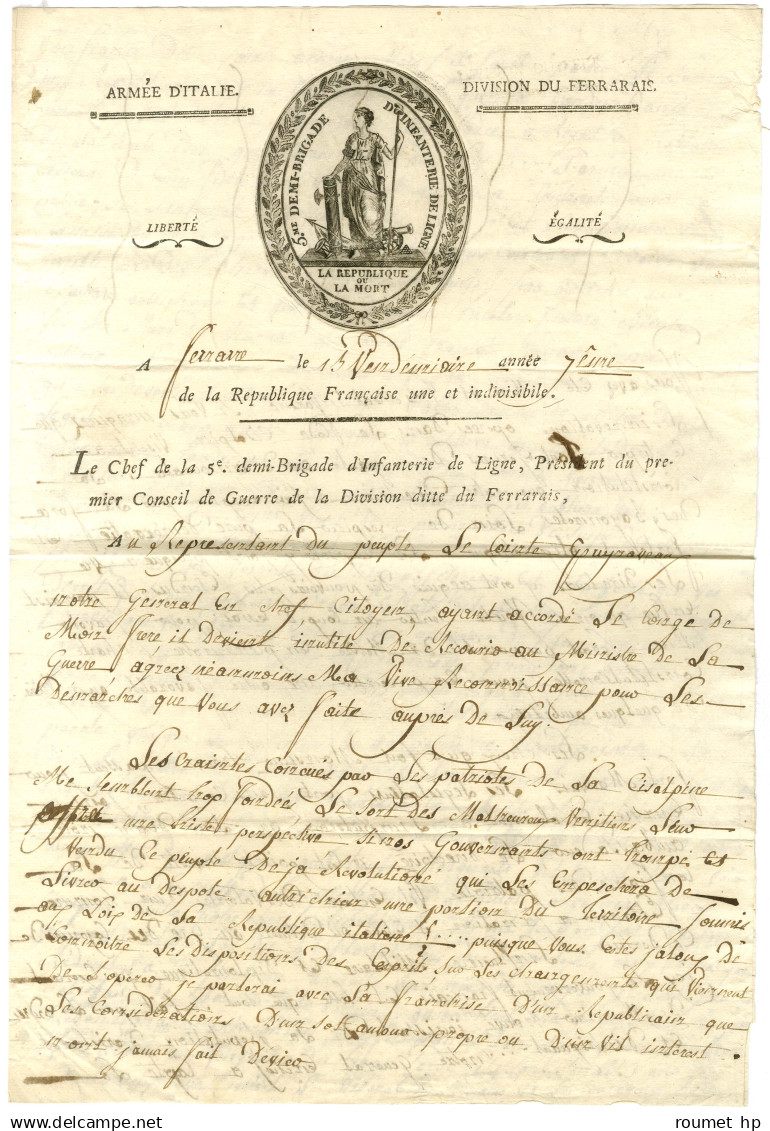 ARMÉE D'ITALIE.
DIVISION DU FERRARAIS.
5.ME DEMI-BRIGADE D'INFANTERIE DE LIGNE
LIBERTÉ
ÉGALITÉ
LA REPUBLIQUE
OU
LA MORT
A ferrare le Vendemiaire année 7ème
de la Republique Française une et indivisibile.
Le Chef de la 5e. demi-Brigade d'Infanterie de Ligne, Président du pre-
mier Conseil de Guerre de la Division ditte du Ferrarais,
Au Representant du peuple Le Cointe Puyraveau
notre General En chef, Citoyen, ayant accordé Le Congé de
Mon frere, il Devient inutile De Recourir au Ministre de La
Guerre agreez néanmoins Ma Vive Reconnoissance pour Les
Démarches que Vous avez faite aupres de Luy.
Les Craintes Concués par Les patriotes de La Cisalpine
Me semblent trop fondées Le Sort des Malheureux Venitiens Leur
offre une triste perspective Si nos Gouvernants ont trompé, et
Vendu Ce peuple De ja Revolutioné qui Les Empeschera De
Livrer au Despote autrichien une portion Du Territoire soumis
aux Loix de La Republique italiene! .... puisque Vous Etes jaloux De
Connoitre Les Dispositions des Esprits sur Les changements qui Viennent
De s'operer je parlerai avec La franchise D'un Republicain que
Les Considerations D'un sot amour propre ou D'un Vil interest
n'ont jamais fait Dévier
roumet hp